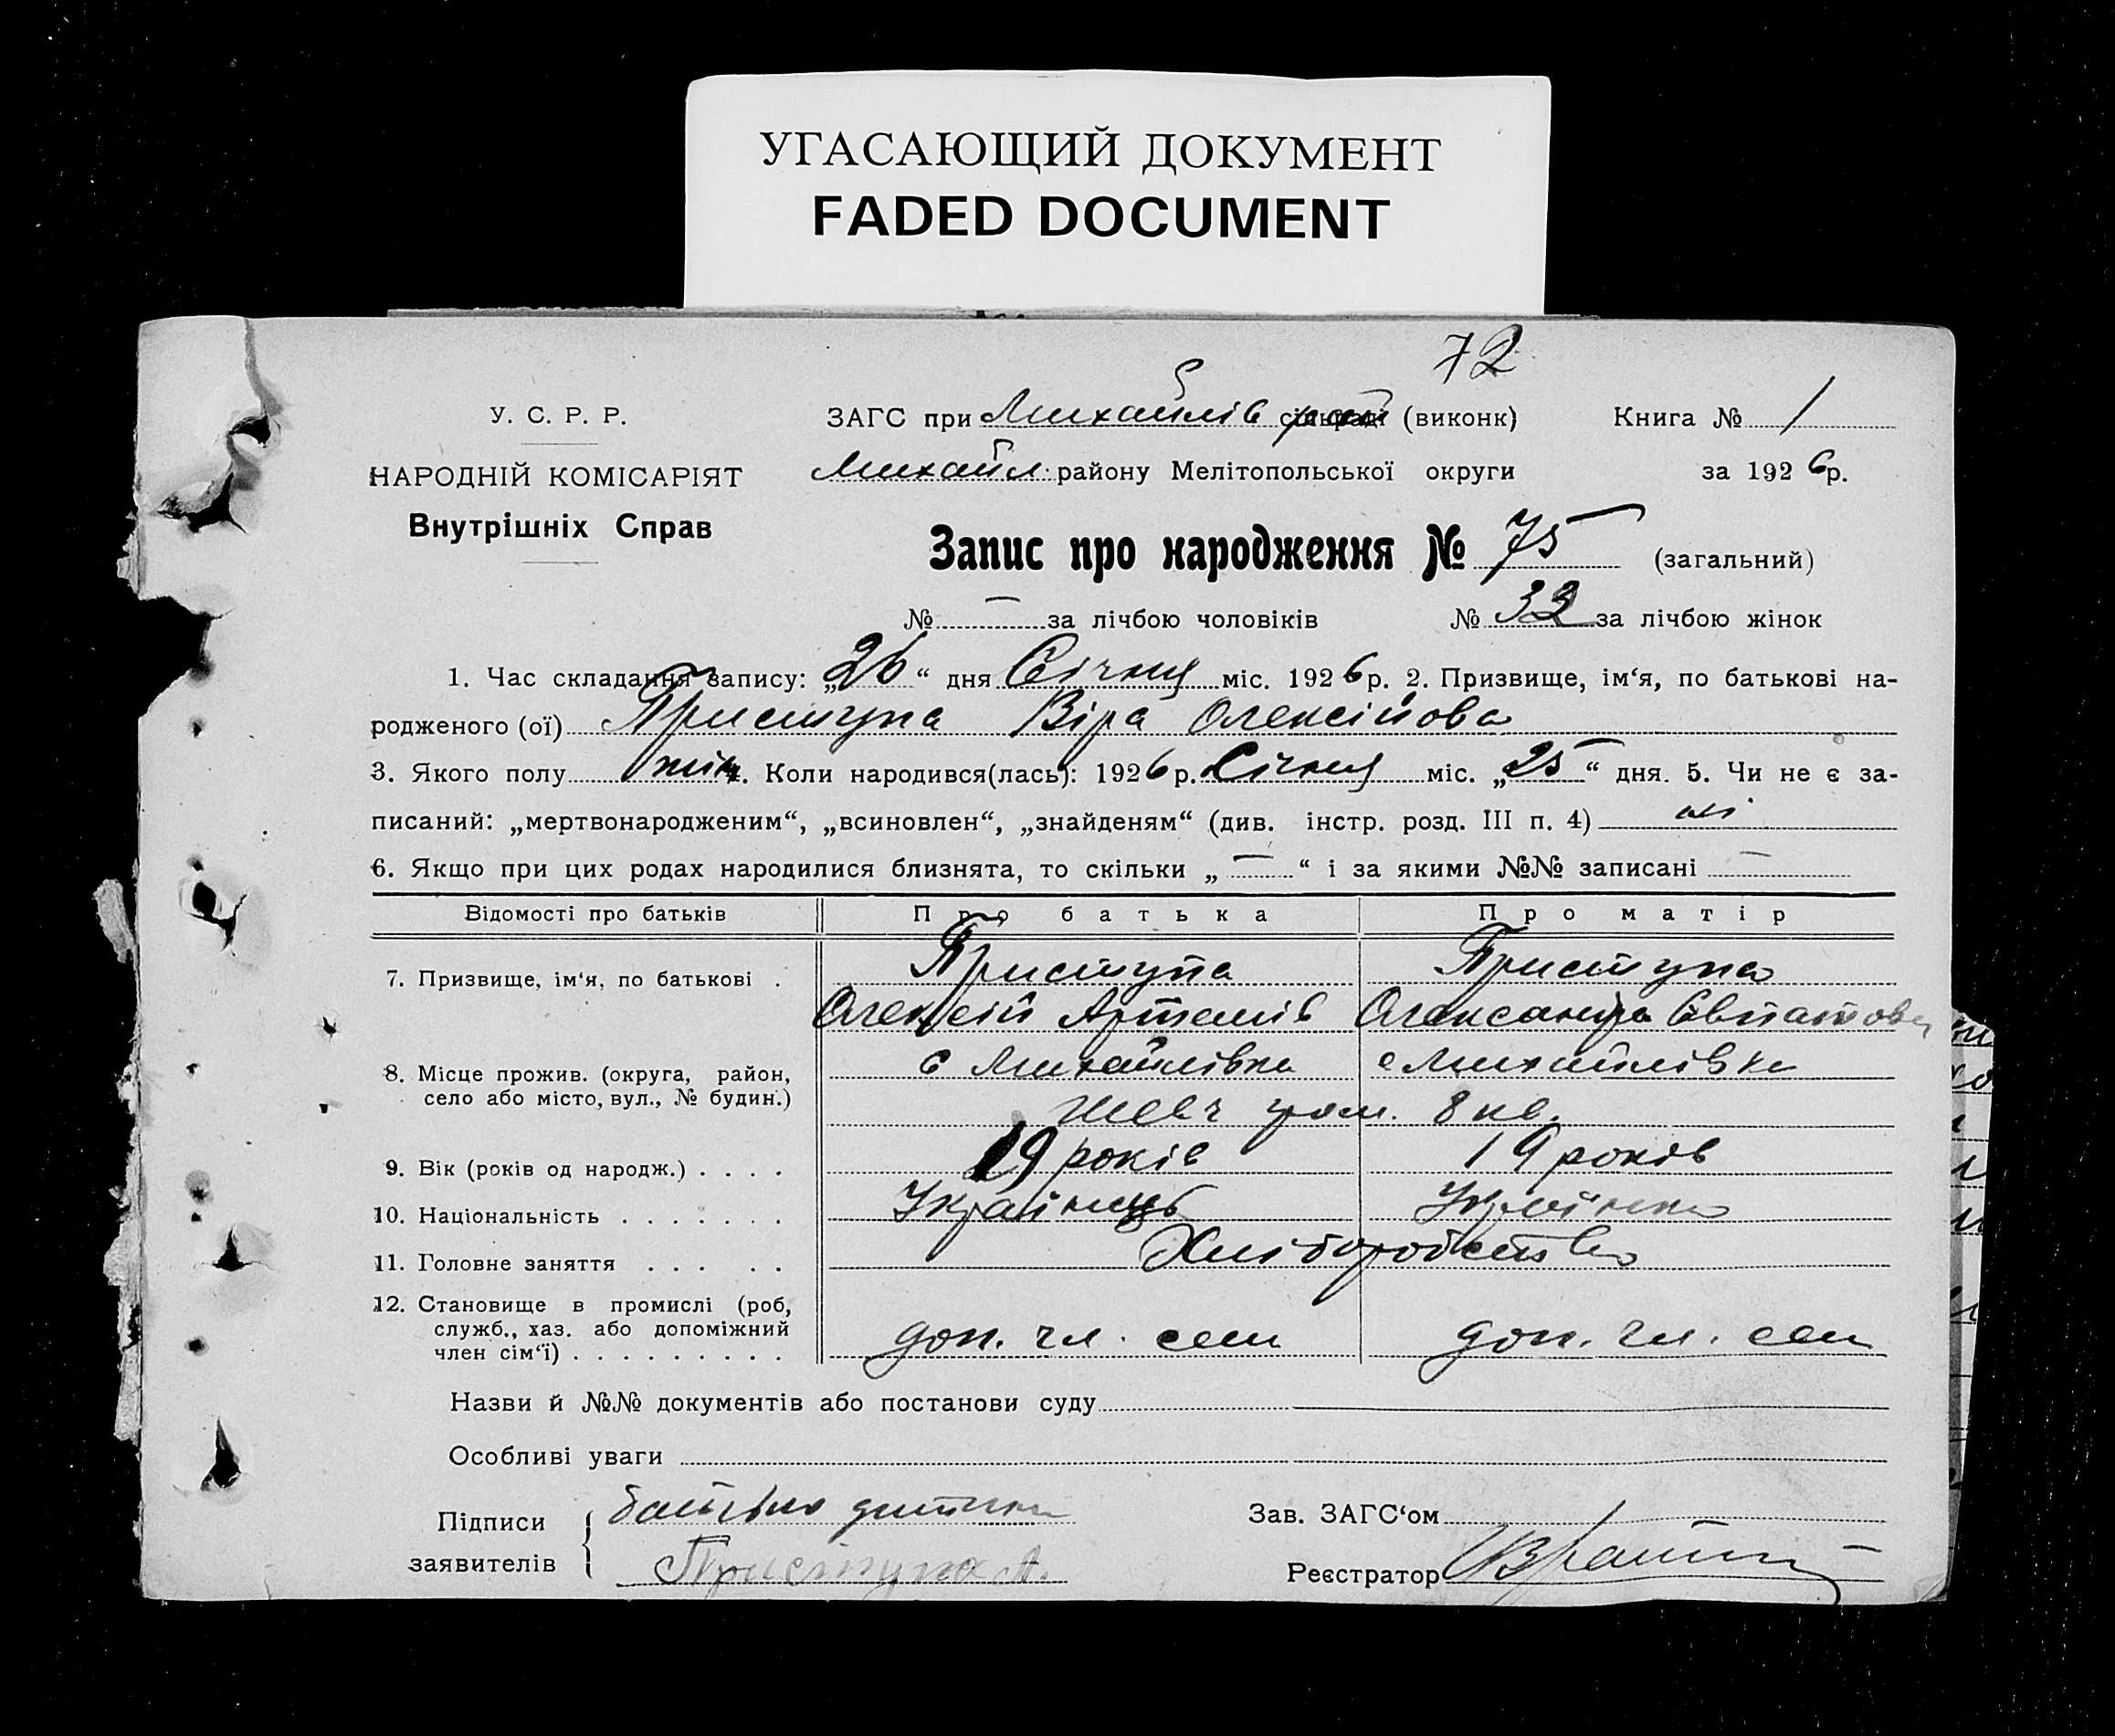 УГАСАЮЩИЙ ДОКУМЕНТ
FADED DOCUMENT
72
У. С. Р. Р.
ЗАГС при Михайлів сільраді (виконк)
Книга № 1
НАРОДНІЙ КОМІСАРІЯТ
Михайл. району Мелітопольської округи
за 1926р.
Внутрішніх Справ
Запис про народження № 75 (загальний)
№ — за лічбою чоловіків № 32 за лічбою жінок
1. Час складання запису: „26“ дня Січня міс. 1926р. 2. Призвище, ім‘я, по батькові на-
родженого (ої) Приступа Віра Олексійова
3. Якого полу жін 4. Коли народився(лась): 1926р. Січня міс. „25“ дня. 5. Чи не є за-
писаний: „мертвонародженим“, „всиновлен“, „знайденям“ (див. інстр. розд. III п. 4) ні
6. Якщо при цих родах народилися близнята, то скільки „—“ і за якими №№ записані —
Відомості про батьків Про батька Про матір
7. Призвище, ім‘я, по батькові . Приступа Приступа
Олексій Артемів Олександра
8. Місце прожив. (округа, район, с Михайлівка с Михайлівка
село або місто, вул., № будин.) Шевч гром. 8 кв.
9. Вік (років од народж.) . . . . 19 років 19 років
10. Національність . . . . . . . Українець Українка
11. Головне заняття . . . . . Хліборобство
12. Становище в промислі (роб,
служб., хаз. або допоміжний
член сім‘ї) . . . . . . . . . доп. чл. сем доп. чл. сем
Назви й №№ документів або постанови суду
Особливі уваги
Підписи
заявителів
батько дитини
Приступа А.
Зав. ЗАГС‘ом
Реєстратор